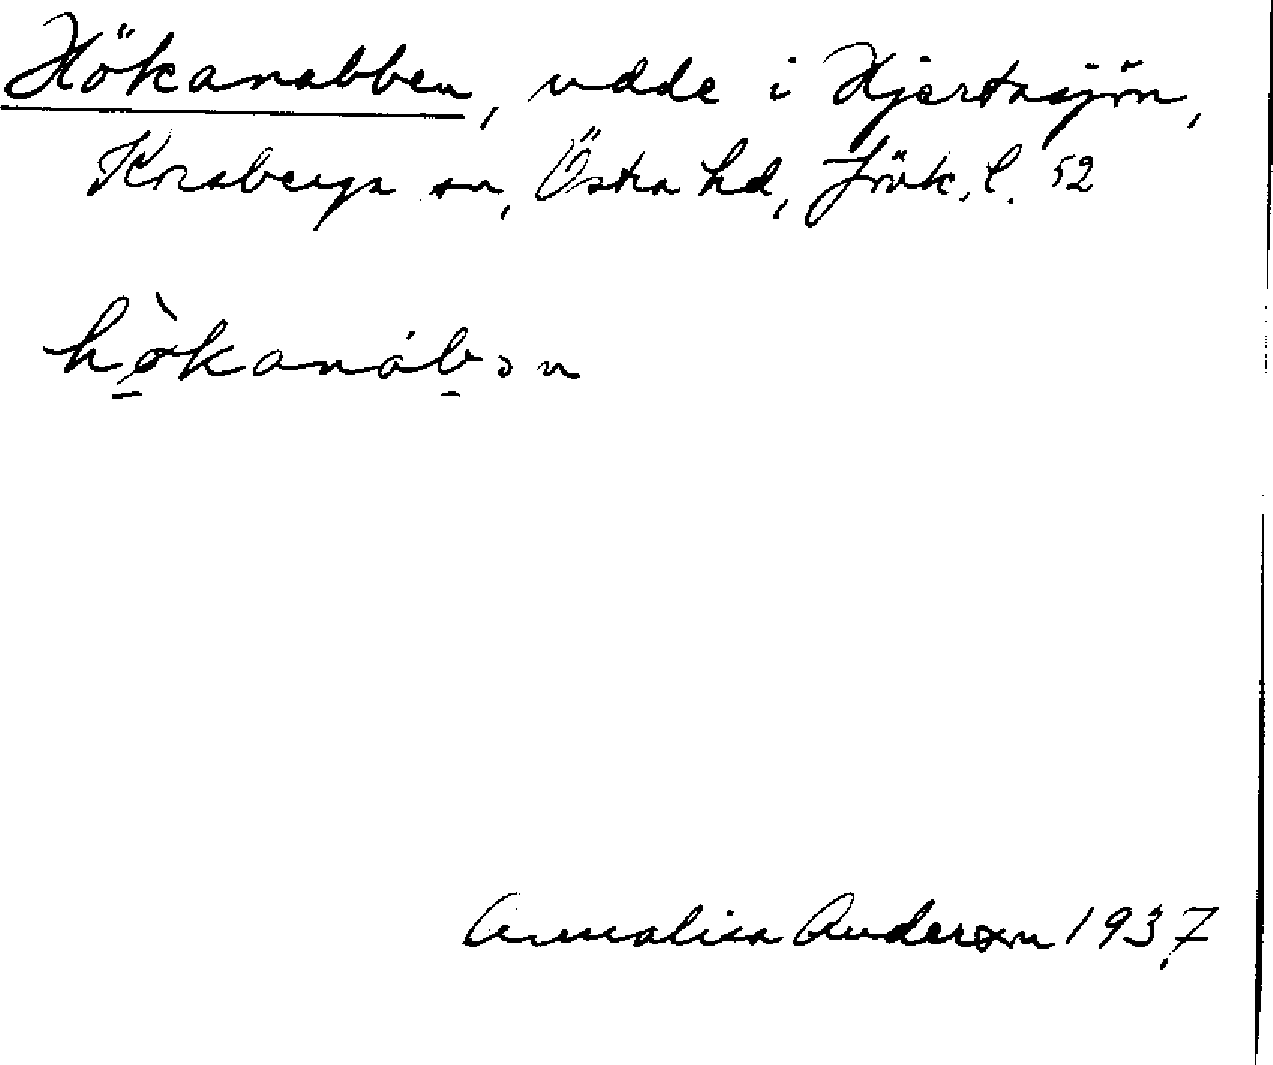 Hökanabben, udde i Hjertasjön,
Korsberga sn, Östra hd, Jönk. l. 52
hö̀kanábən
Annalisa Anderson 1937